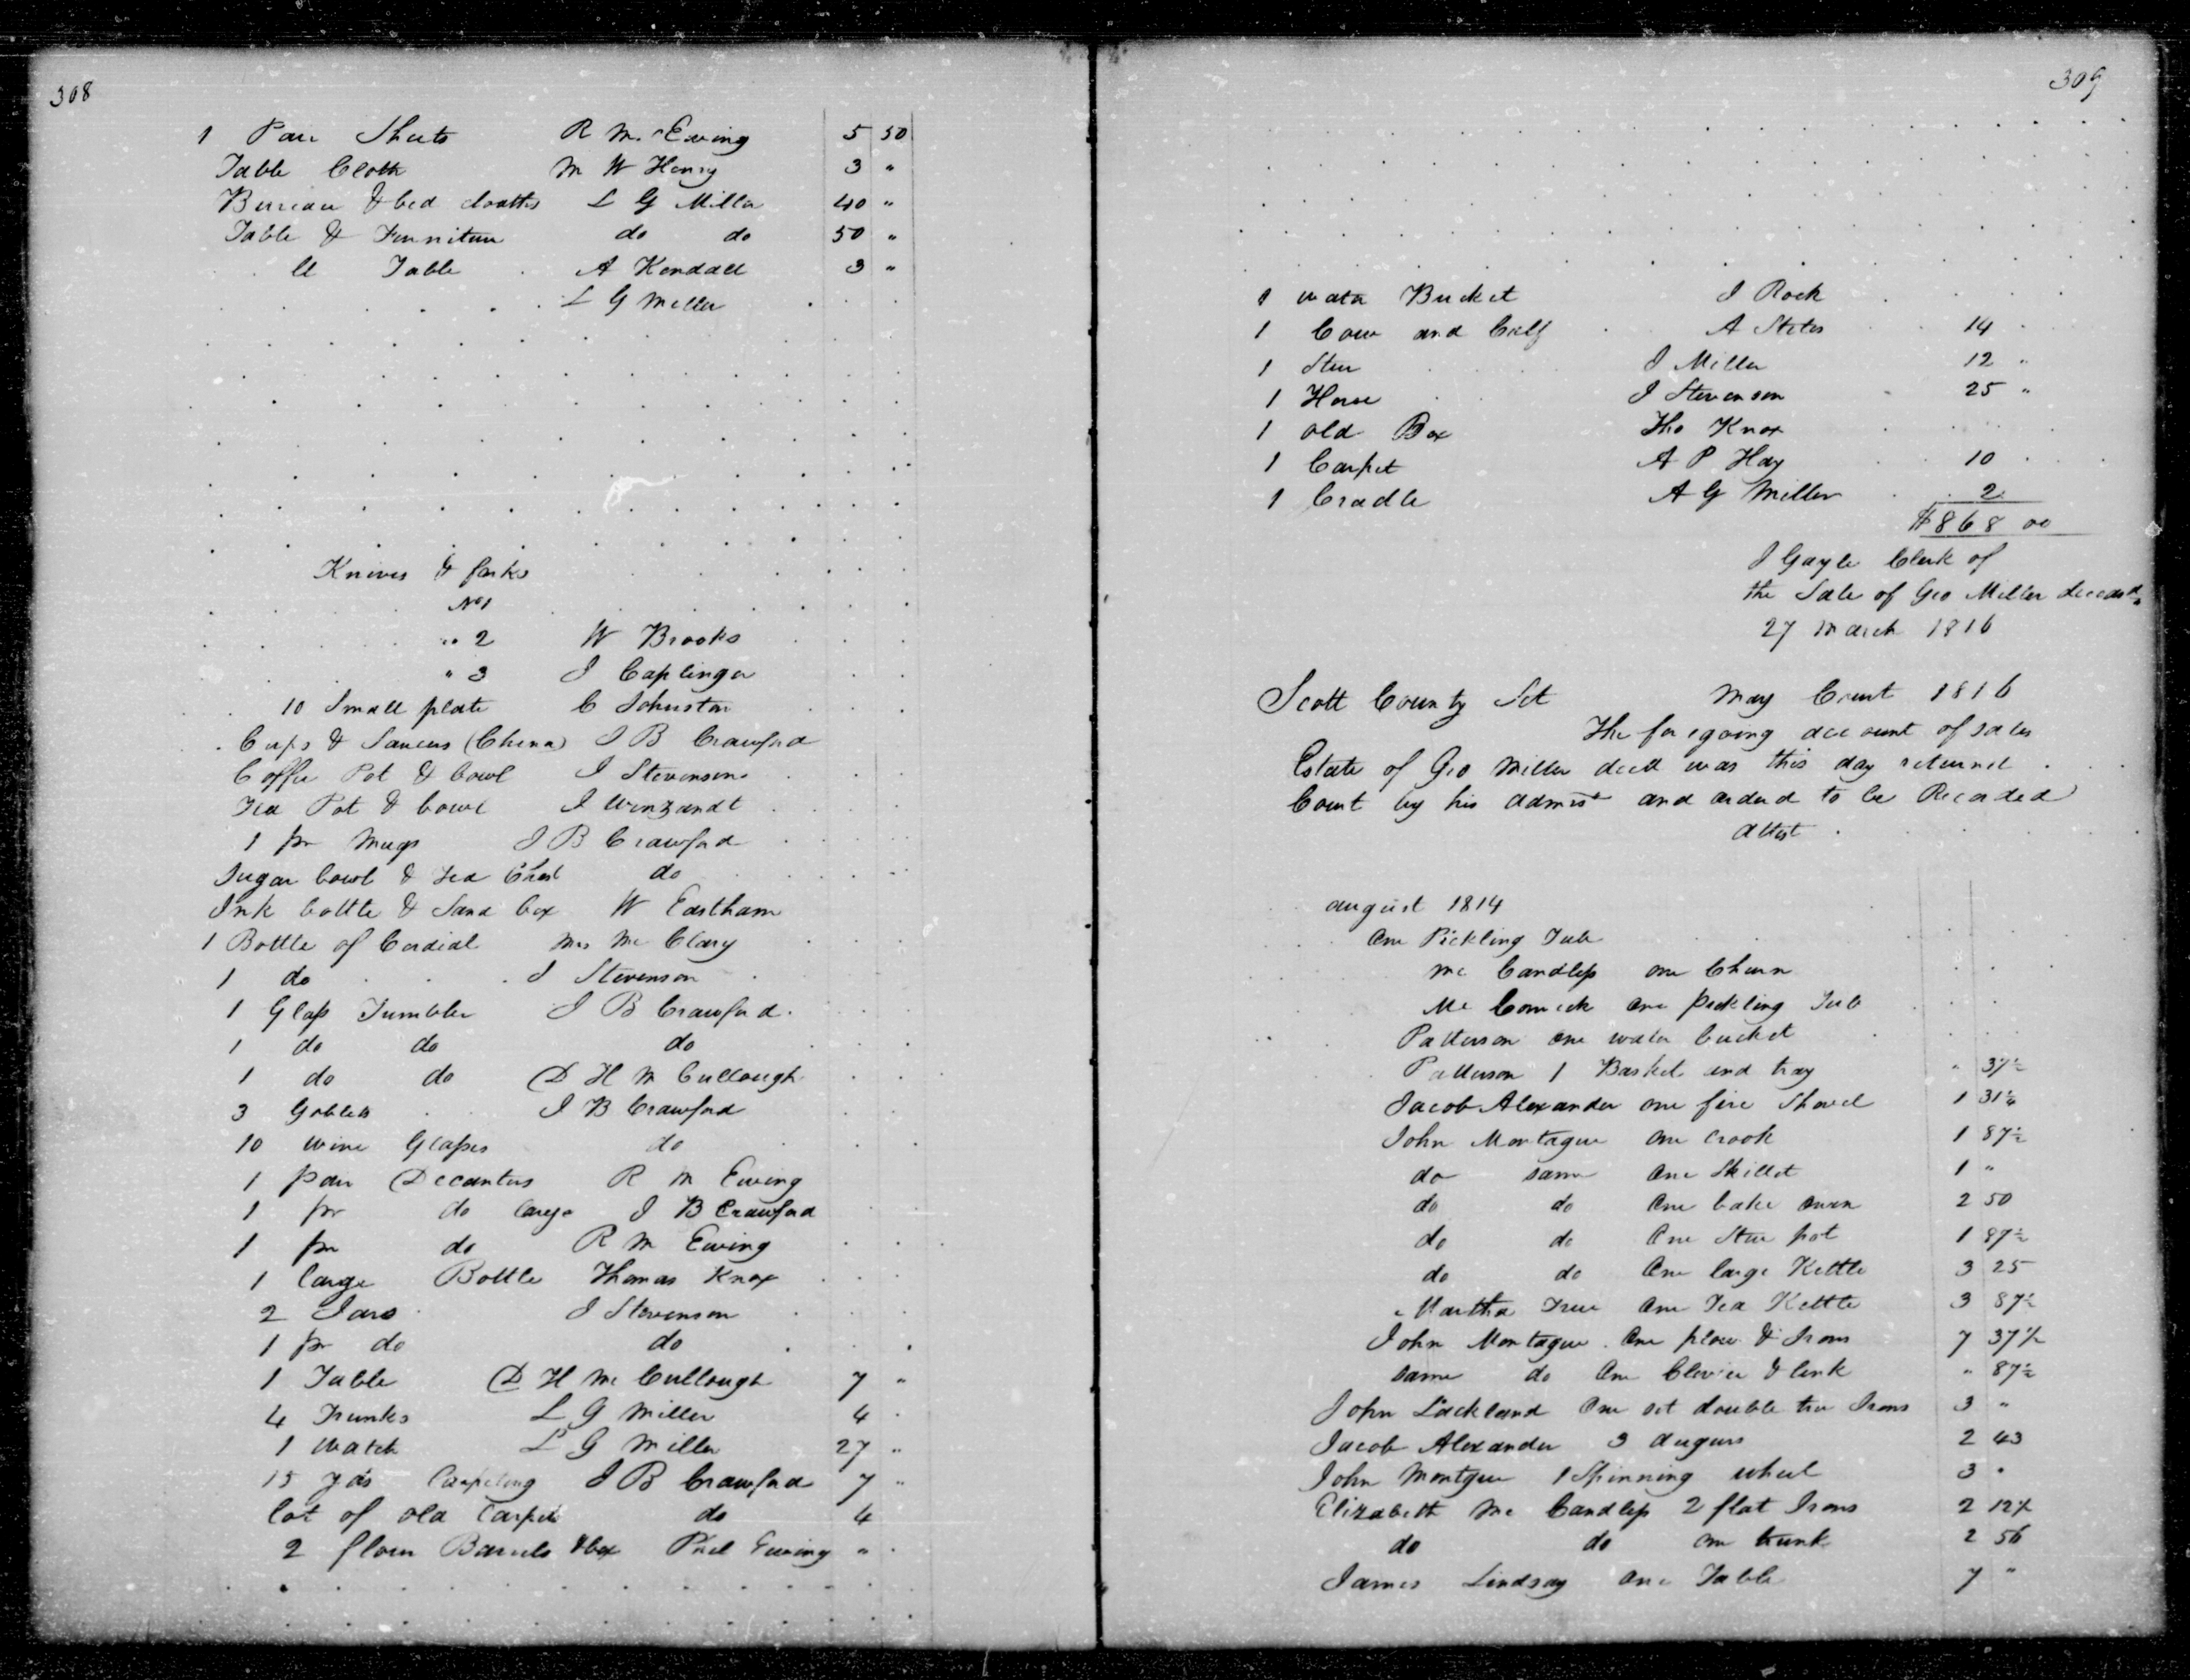 308
1 Pair Sheets R Mc Ewing 5 50
Table Cloth M W Henry 3 "
Bureau & bed cloathes L G Miller 40 "
Table & Furniture do do 50 "
Table A Kendall 3 "
L G Miller
Knives & forks
No 1
" 2 W Brooks
" 3 J Caplinger
10 Small plate C Johnston
Cups & Saucers (China) J B Crawford
Coffee Pot & bowl J Stevenson
Tea Pot & bowl J Winzandt
1 pr Mugs J B Crawford
Sugar bowl & tea Chest do
Ink bottle & Sand box W Eastham
1 Bottle of Cordial Mrs Mc Clary
1 do J Stevenson
1 Glass Tumbler J B Crawford
1 do do do
1 do do D H M Cullough
3 Goblets J B Crawford
10 wine Glasses do
1 pair Decanters R M Ewing
1 pr do large J B Crawford
1 pr do R M Ewing
1 large Bottle Thomas Knox
2 Jars J Stevenson
1 pr do do
1 Table D H Mc Cullough 7 "
4 Trunks L G Miller 4
1 Watch L G Miller 27 "
15 yds Carpeting J B Crawford 7 "
lot of old Carpet do 4
2 flour Barrels & box Ewing "
309
1 water Bucket J Rock
1 Cow and Calf A Stites 14
1 Steer J Miller 12 "
1 Horse J Stevenson 25 "
1 old Box Tho Knox
1 Carpet A P Hay 10
1 Cradle A G Miller 2
$868 00
J Gayle Clerk of
the Sale of Geo Miller deceasd
27 March 1816
Scott County Sct May Court 1816
The foregoing account of sales
Estate of Geo Miller decd was this day returned
Court by his admist and orderd to be Recorded
attest
august 1814
One Pickling Tub
Mc Candless one Churn
Mc Comick one pickling Tub
Patterson one water bucket
Patterson 1 Basket and tray " 37½
Jacob Alexander one fire Shovel 1 31¼
John Montague one crook 1 87½
do same One Skillet 1 "
do do One bake oven 2 50
do do One Stew pot 1 87½
do do One large Kettle 3 25
Martha True One Tea Kettle 3 87½
John Montague One plow & Irons 7 37½
same do One Clevice & link " 87½
John Lackland One set double tree Irons 3 "
Jacob Alexander 3 augurs 2 43
John Montgue 1 Spinning wheel 3 "
Elizabeth Mc Candless 2 flat Irons 2 12½
do do one trunk 2 56
James Lindsay One Table 7 "